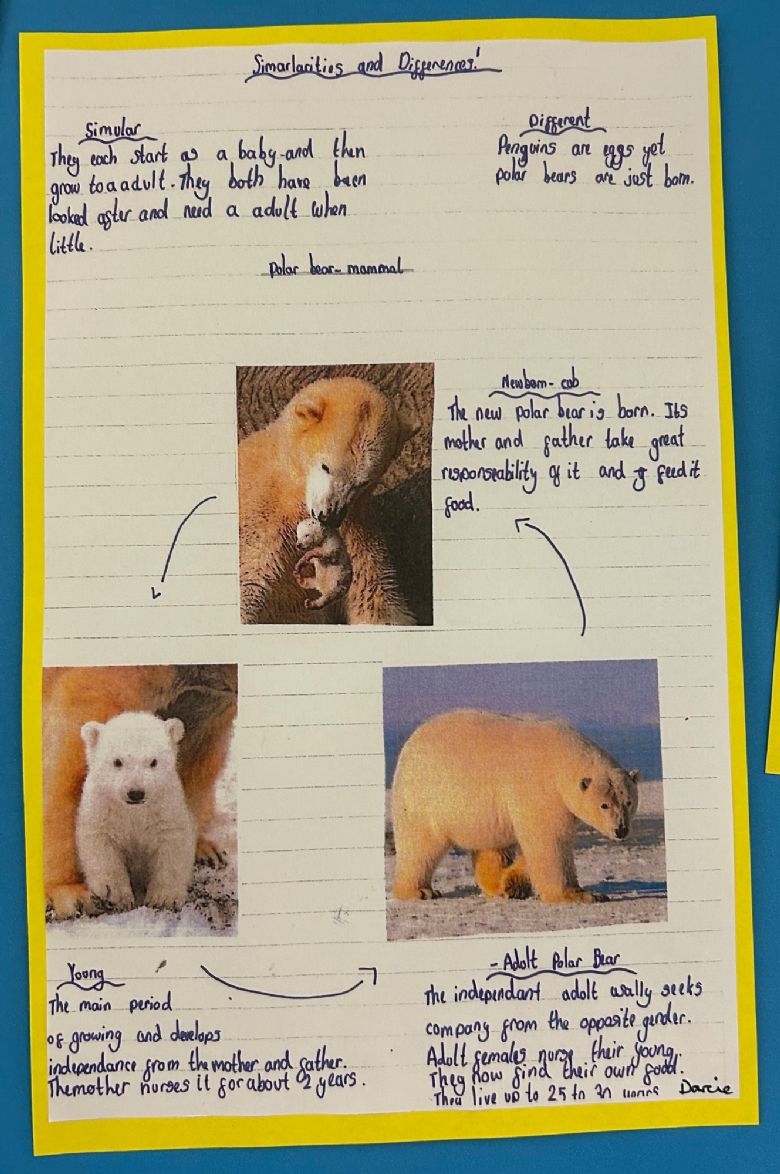 Simarlarities and Differences!
Simular
They each start as a baby and then
grow to a adult. They both have been
looked after and need a adult when
little.
Different
Penguins are eggs yet
polar bears are just born.
Polar bear - mammal
Newborn - cob
The new polar bear is born. Its
mother and father take great
responseability of it and feed it
food.
Young
The main period
of growing and develops
independance from the mother and father.
The mother nurses it for about 2 years.
- Adult Polar Bear
The independant adult usally seeks
company from the opposite gender.
Adult females nurse their young.
They now find their own food.
They live up to 25 to
Darcie